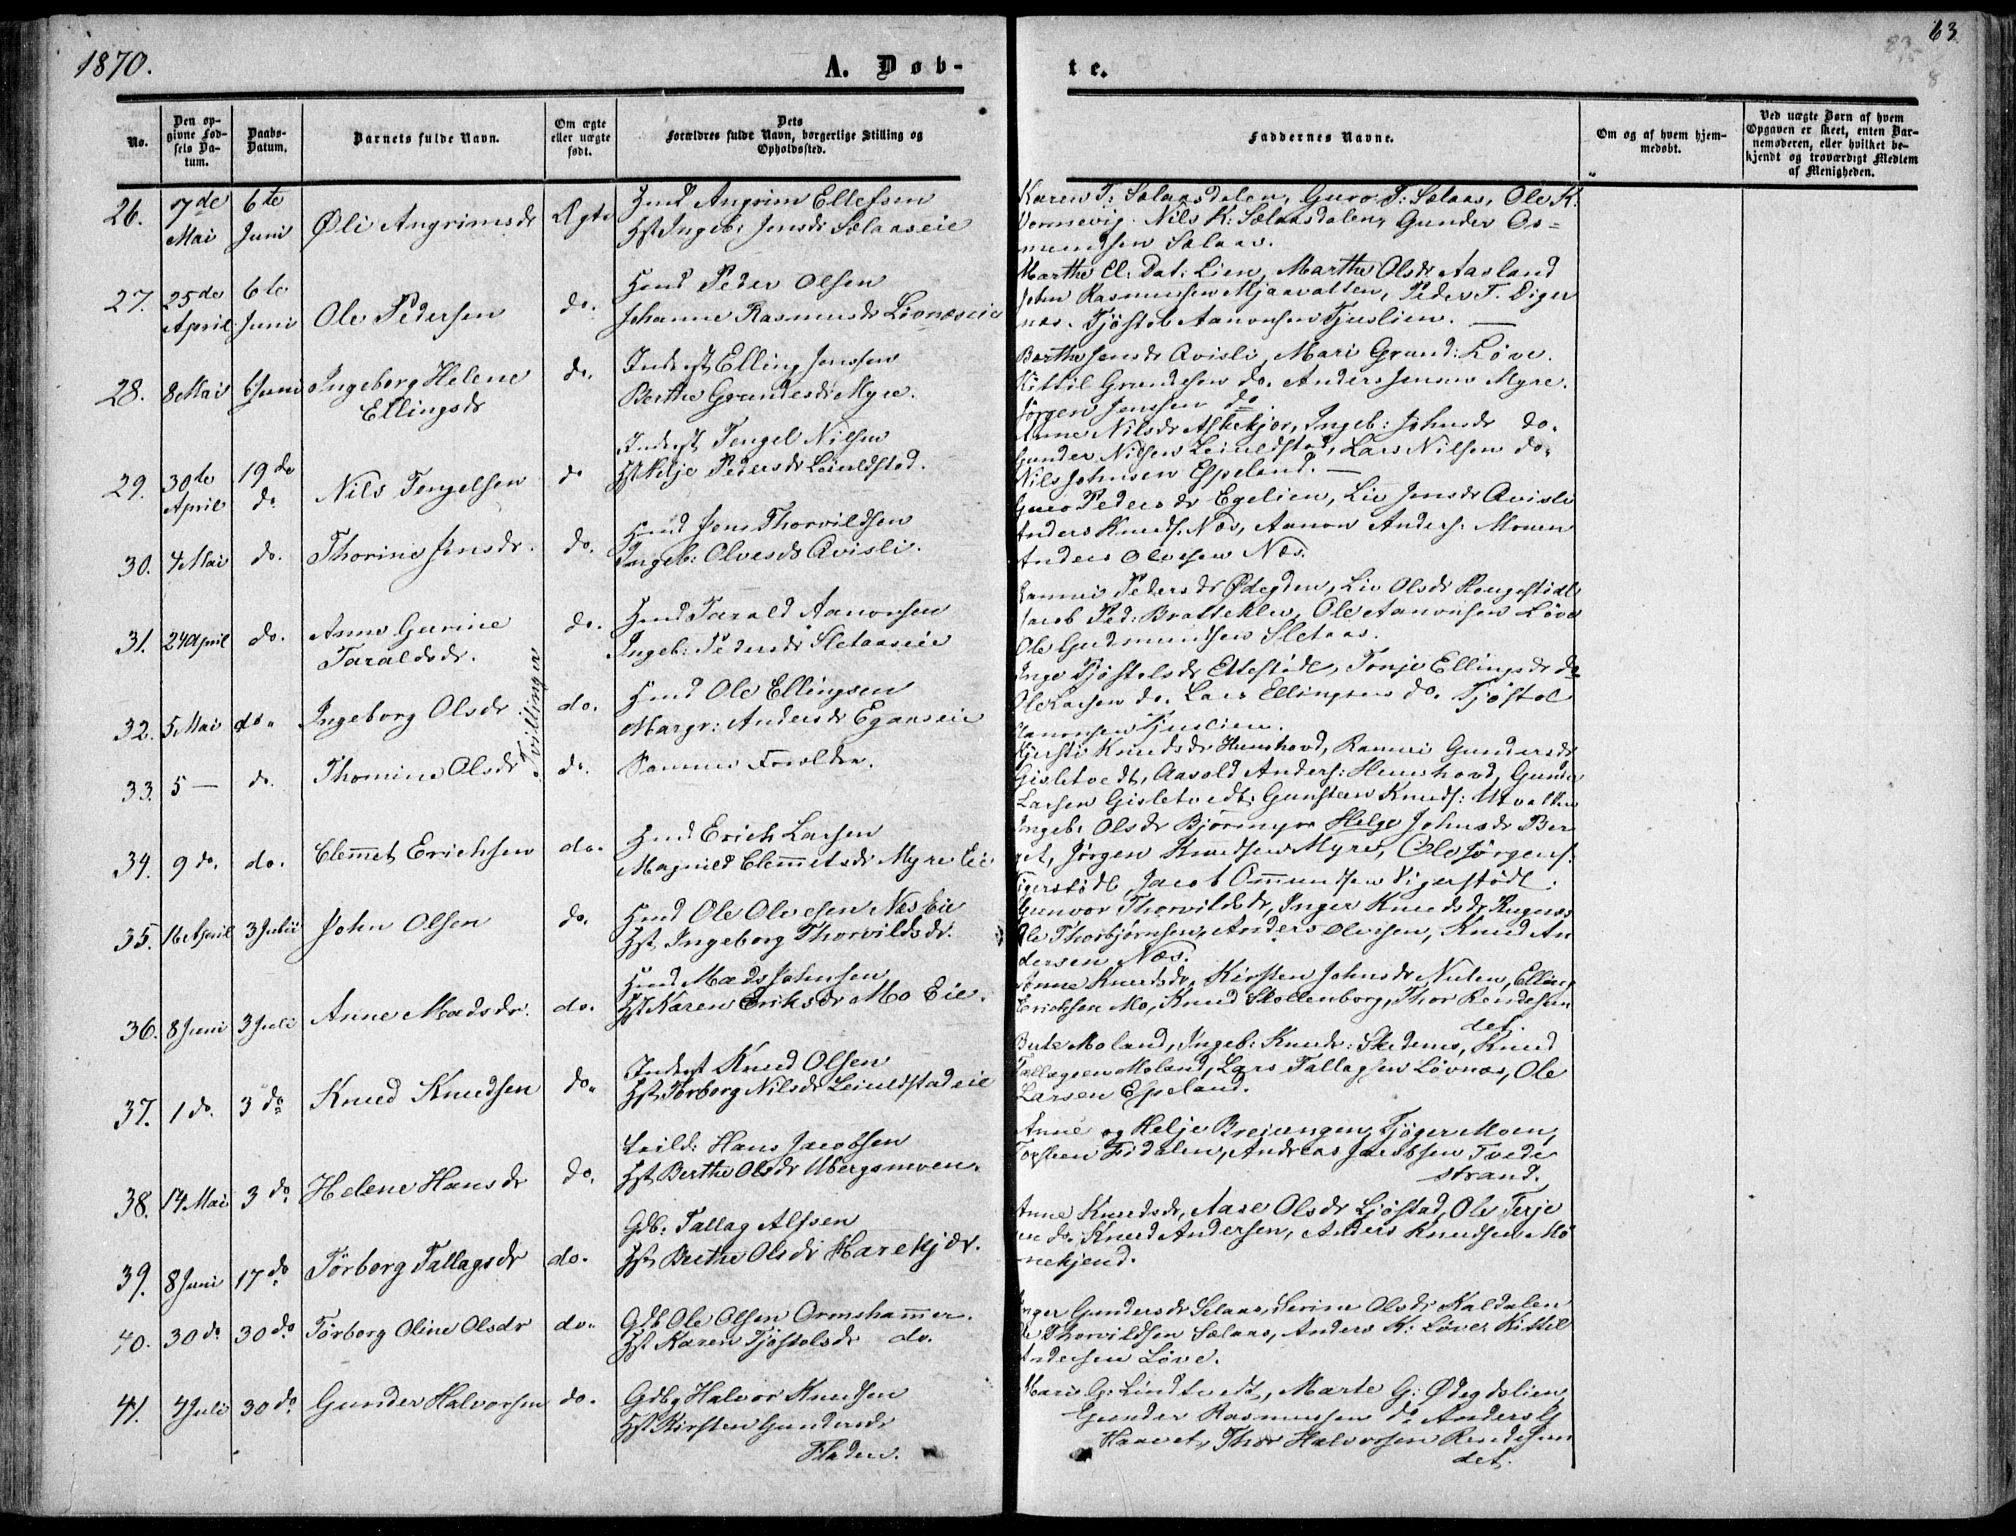 1870.
A. Døb-
te.
63
No.
Den op-
givne Fød-
sels Da-
tum.
Daabs-
Datum.
Barnets fulde Navn.
Om ægte
eller uægte
født.
Dets
Forældres fulde Navn, borgerlige Stilling og
Opholdssted.
Faddernes Navne.
Om og af hvem hjem-
medøbt.
Ved uægte Børn af hvem
Opgaven er skeet, enten Bar-
nemoderen, eller hvilket be-
kjendt og troværdigt Medlem
af Menigheden.
26. 7de Mai 6te Juni Øli Angrimsdr Ægte
Hmd Angrim Ellefsen
Hst Ingeb: Jensdr Sælaaseie
Karen T: Sælaasdalen, Guro T: Sælaas, Ole K.
Vonnevig. Nils K: Sælaasdalen, Gunder Os=
mundsen Sælaas.
27. 25de April 6te Juni Ole Pedersen do.
Hmd Peder Olsen
Johanne Rasmusdr Lionæseie
Marthe El: Dat: Lien, Marthe Olsdr Aasland
John Rasmussen Mjaavatten, Peder T. Diger
næs. Tjøstol Aanonsen Tjuslien. —
28. 8 Mai 6 Juni Ingeborg Helene
Ellingsdr do.
Inderst Elling Jensen
Berthe Grundesdr Myre.
Berthe Jensdr Avisli, Mari Grund: Løve.
Kittil Grundesen do. Anders Jensen Myre.
Jørgen Jenssen do
29. 30te April 19de do Nils Tengelsen do
Inderst Tengel Nilsen
Hst Helje Pedersdr Leiuldstad.
Anne Nilsdr Askekjær, Ingeb: Johnsdr do.
Gunder Nilsen Leiuldstad, Lars Nilsen do.
Nils Johnsen Espeland. —
30. 4 Mai do. Thorine Jensdr. do.
Hmd Jens Thorvildsen
Ingeb: Olvesdr Avisli.
Guro Pedersdr Egelien, Liv Jensdr Avisli
Anders Knuds. Næs, Aanon Anders. Monen
Anders Olvesen Næs.
31. 24 April do. Anne Gurine
Taraldsdr. do.
Hmd Tarald Aanonsen
Ingeb: Pedersdr Sletaaseie
Ramvei Pedersdr Ødegden, Liv Olsdr Haugestødt
Jacob Ped: Brattekleiv, Ole Aanonsen Løve
Ole Gudmundsen Sletaas.
32. 5 Mai do. Ingeborg Olsdr do.
Tvillinger
Hmd Ole Ellingsen
Margr: Andersdr Eganseie
Inge Tjøstolsdr Ettestødt, Tonje Ellingsdr do
Ole Larsen do. Lars Ellingsen do. Tjøstol
Aanonsen Tjuslien.
33. 5 — do. Thomine Olsdr do.
Samme Forældre.
Kjersti Knudsdr Humshovd, Ramvei Gundersdr
Gisletvedt, Aasold Anders: Humshovd, Gunder
Larsen Gisletvedt, Gunsten Knuds: Utvatten
34. 9 do. do. Clemmet Erichsen do.
Hmd Erich Larsen
Magnild Clemmetsdr Myre Eie
Ingeb: Olsdr Bjørmyr Helge Johnsdr Ber
get, Jørgen Knudsen Myre, Ole Jørgens.
Vigerstødt, Jacob Ommundsen Vigerstødt.
35. 16 April 3 Julii John Olsen do.
Hmd Ole Olvesen Næs Eie
Hst Ingeborg Thorvildsdr.
Gunvor Thorvildsdr, Inger Knudsdr Rugnæs
Ole Thorbjørnsen, Anders Olvesen, Knud An
dersen Næs.
36. 8 Juni 3 Juli Anne Madsdr. do.
Hmd Mads Johnsen
Hst Karen Eriksdr Mo Eie.
Anne Knudsdr, Kirsten Johnsdr Nuten, Elling
Erichsen Mo, Knud Skollenborg, Thor Rendesun
det.
37. 1 do. 3 do Knud Knudsen do.
Inderst Knud Olsen
Hst Torborg Nilsdr Leiuldstadeie
Berte Moland, Ingeb: Knuds: Skedenes, Knud
Tallagsen Moland, Lars Tallagsen Løvnæs, Ole
Larsen Espeland.
38. 14 Mai 3 do. Helene Hansdr do.
Leild: Hans Jacobsen
Hst Berthe Olsdr Ubergsmoen.
Anne og Helje Breiungen, Tjøger Moen,
Torsteen Fidalen, Andreas Jacobsen Tvede
strand.
39. 8 Juni 17 do Torborg Tallagsdr do.
Gdb: Tallag Alfsen
Hst Berthe Olsdr Harekjær.
Anne Knudsdr, Aase Olsdr Ljøstad, Ole Terje
sen do. Knud Andersen, Anders Knudsen Mø
nekjend.
40. 30 do 30 do. Torborg Oline Olsdr do.
Gdb Ole Olsen Ormshammer.
Hst Karen Tjøstolsdr do.
Inger Gundersdr Selaas, Serine Olsdr Kaldalen
Ole Thorvildsen Sælaas, Anders K: Løve, Kittil
Andersen Løve.
41. 4 Juli 30 do. Gunder Halvorsen do.
Gdbg Halvor Knudsen
Hst Kirsten Gundersdr
Fladen.
Marie G: Lindtvedt, Marte G: Ødegdslien,
Gunder Rasmussen do Anders G
Haavet, Thor Halvorsen Rendesun
det.